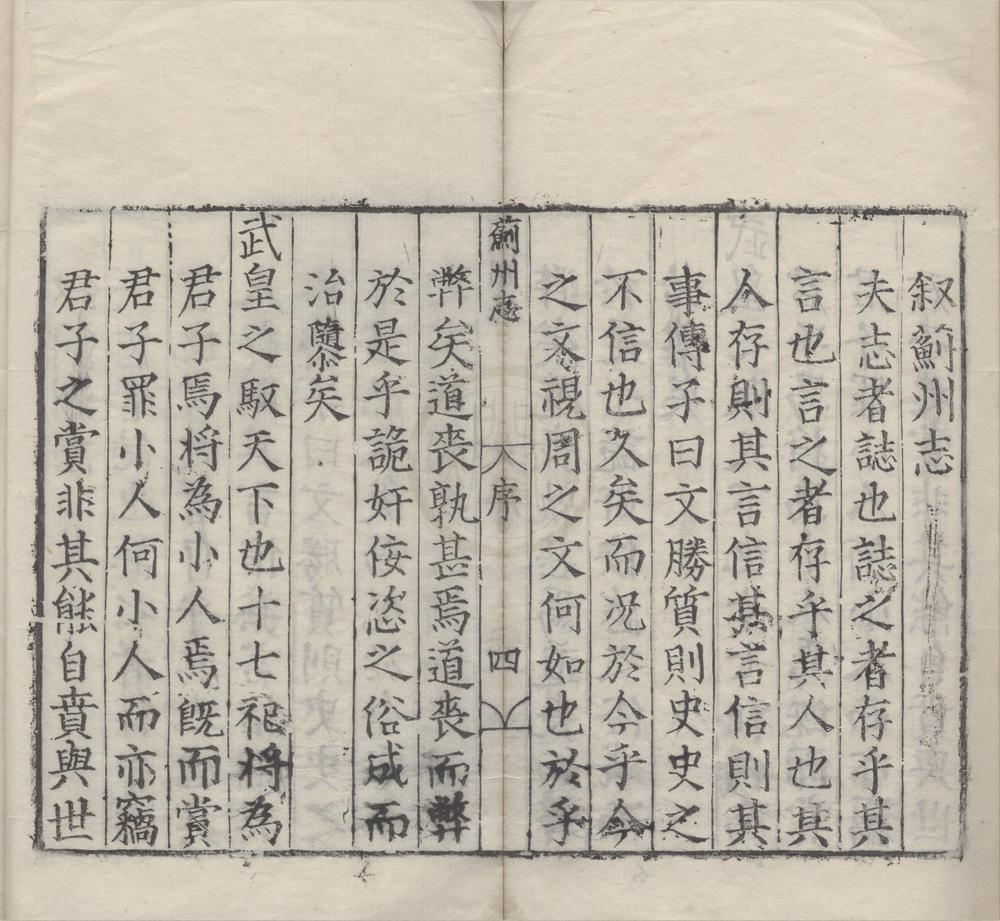 叙薊州志
夫志者誌也誌之者存乎其
言也言之者存乎其人也其
人存則其言信其言信則其
事傳子曰文勝質則史史之
不信也久矣而况於今乎今
之文視周之文何如也於乎
薊州志 序 四
弊矣道喪孰甚焉道喪而弊
於是乎詭奸侫恣之俗成而
治隨忝矣
武皇之馭天下也十七祀将為
君子焉将為小人焉旣而賞
君子罪小人何小人而亦竊
君子之賞非其能自賁與世